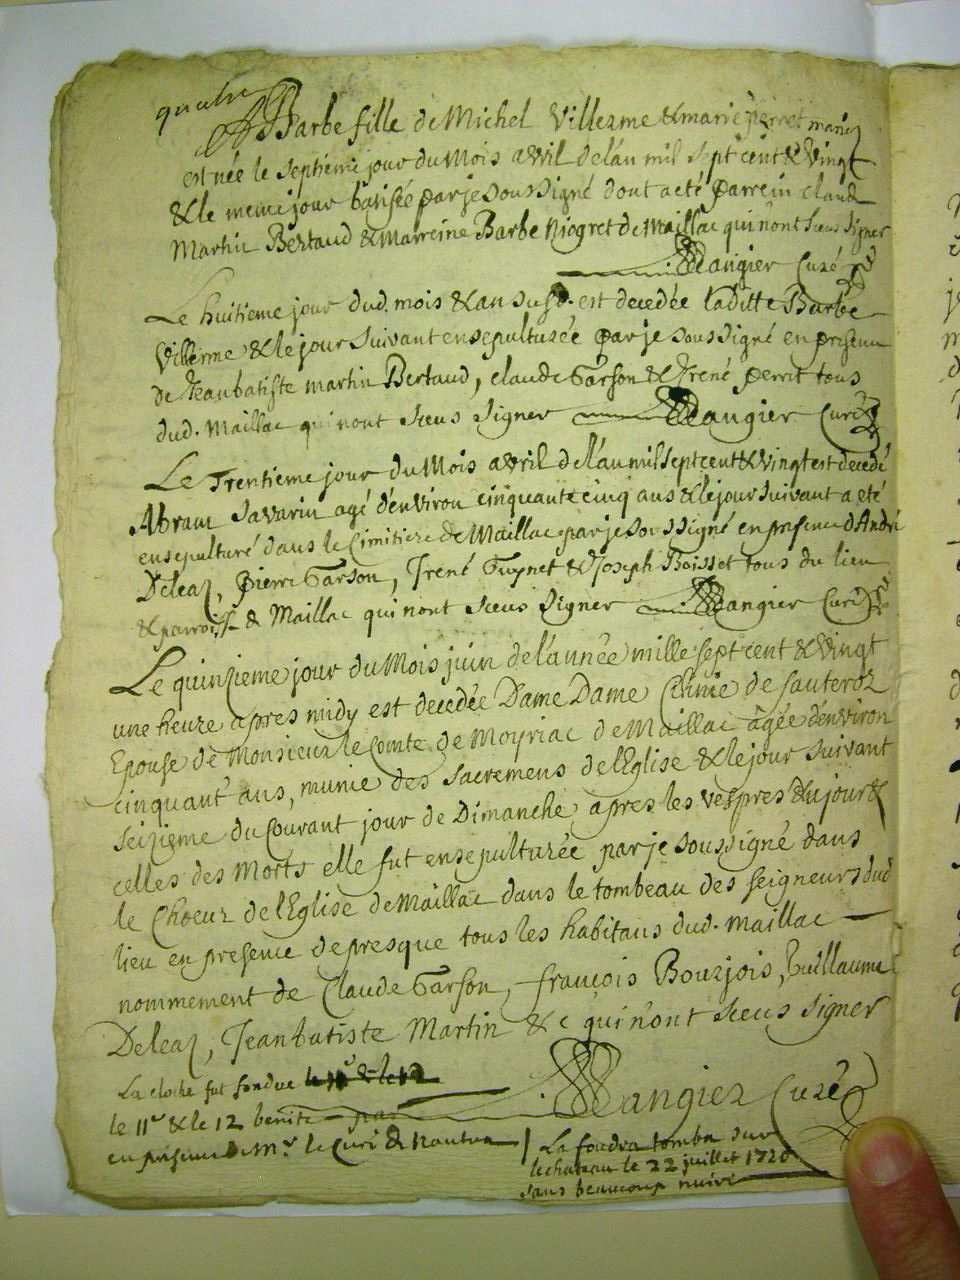 quatre
Barbe fille de Michel Villerme & marie perret mariez
est née le septieme jour du Mois avril de l'an mil sept cent & vingt
& le meme jour batisée par je soussigné dont a eté parrein claude
Martin Bertaud & marreine Barbe Niogret de Maillac qui n'ont sceus signer
Mangier Curé
Le huitieme jour dud. mois & an susd. est decedée laditte Barbe
Villerme & le jour suivant ensepulturée par je soussigné en presence
de Jean batiste martin Bertaud, claude Garson & Irené perrit tous
dud. Maillac qui nont sceus signer Mangier Curé
Le Trentieme jour du Mois avril de l'an mil sept cent & vingt est decedé
Abram Savarin agé d'environ cinquante cinq ans & le jour suivant a eté
ensepulturé dans le Cimitiere de Maillac par je soussigné en presence d'André
Deleaz, pierre Garson, Irené Guynet & Joseph Boisset tous du lieu
& parroisse de Maillac qui nont sceus signer Mangier Curé
Le quinzieme jour du Mois juin de l'année mille sept cent & vingt
une heure apres midy est decedée Dame Dame de sauteroz
Epouse de Monsieur le Comte de Moyriac de Maillac âgée d'environ
cinquant' ans, munie des sacremens de l'Eglise & le jour suivant
seizieme du Courant jour de Dimanche apres les vespres du jour &
celles des Morts elle fut ensepulturée par je soussigné dans
le Choeur de l'Eglise de Maillac dans le tombeau des seigneurs dud
lieu en presence de presque tous les habitans dud. maillac
nommement de Claude Garson, françois Bourjois, Guillaume
Deleaz, Jean batiste Martin &c qui n'ont sceus signer
La cloche fut fondue le 11e & le 12
le 11e & le 12 benite par Mangier Curé
en presence de Mr. le Curé de nantua
La foudre tomba sur
le chateau le 22 juillet 1720
sans beaucoup nuire